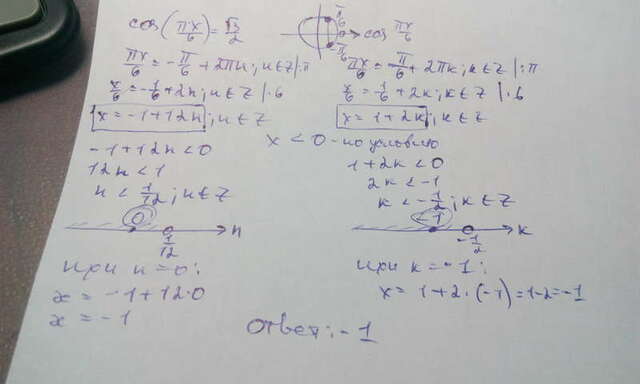 cos(πx/6) = √3/2
π/6
0
π/6
cos πx/6
πx/6 = -π/6 + 2πn; n∈Z |:π
x/6 = -1/6 + 2n; n∈Z |·6
x = -1 + 12n; n∈Z
πx/6 = π/6 + 2πk; k∈Z |:π
x/6 = 1/6 + 2k; k∈Z |·6
x = 1 + 2k; k∈Z
x < 0 - по условию
-1 + 12n < 0
12n < 1
n < 1/12; n∈Z
0
1/12
n
при n = 0:
x = -1 + 12·0
x = -1
1 + 2k < 0
2k < -1
k < -1/2; k∈Z
-1
-1/2
k
при k = -1:
x = 1 + 2·(-1) = 1-2 = -1
Ответ: -1